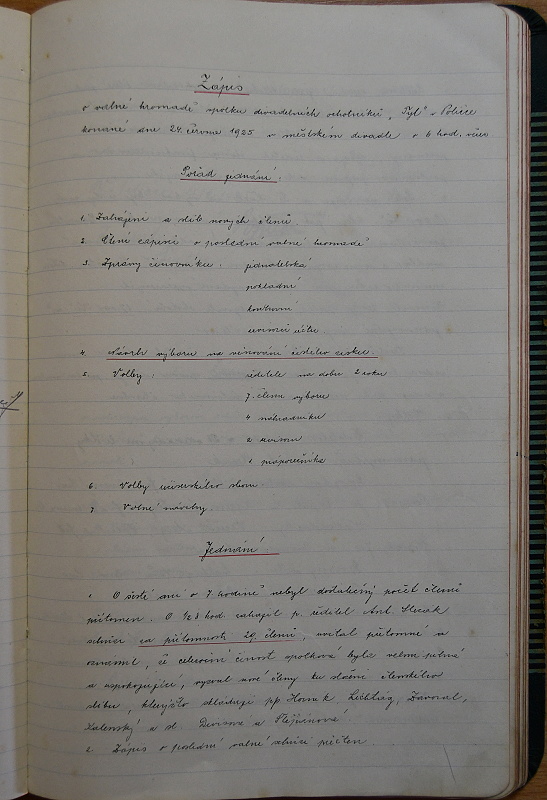 Zápis
o valné hromadě spolku divadelních ochotníků "Tyl" v Polici
konané dne 24. června 1925 v městském divadle o 6 hod. večer
Pořad jednání:
1. Zahájení a slib nových členů
2. Čtení zápisu o poslední valné hromadě
3. Zprávy činovníků: jednatelská
pokladní
knihovní
revisorů účtů
4. Návrh výboru na věnování
5. Volby: ředitele na dobu 2 roků
7. členů výboru
4 náhradníků
2 revisorů
1 praporečníka
6. Volby
7. Volné návrhy
Jednání
1. O šesté ani o 7. hodině nebyl dostatečný počet členů
přítomen. O ½8 hod. zahájil p. ředitel Ant.
schůzi za přítomnosti 29. členů, uvítal přítomné a
oznámil, že celoroční činnost spolková byla velmi pilná
a uspokojující, vyzval nové členy ku složení členského
slibu, kterýžto skládají pp. Horák, Lichtág, Zavoral,
Kalenský a sl. a
2. Zápis o poslední valné schůzi přečten.